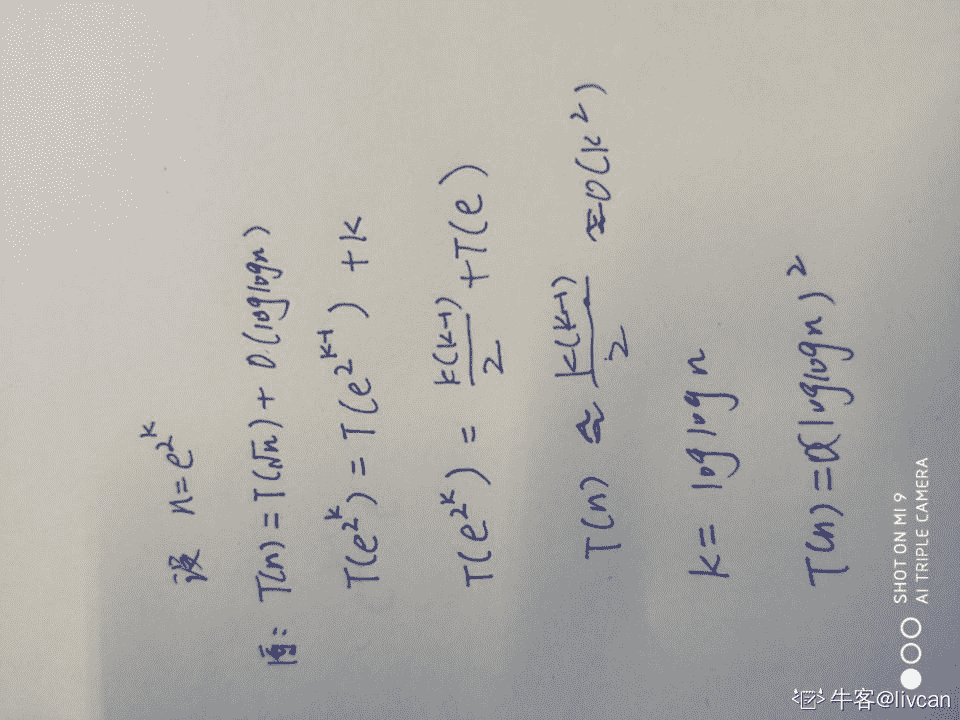 设 n=e^{2^k}
原: T(n)=T(√n)+O(loglogn)
T(e^{2^k})=T(e^{2^{k-1}})+k
T(e^{2^k})=\frac{k(k-1)}{2}+T(e)
T(n)≈\frac{k(k-1)}{2}≈O(k^2)
k=loglogn
T(n)=O(loglogn)^2
SHOT ON MI 9
AI TRIPLE CAMERA
牛客@livcan